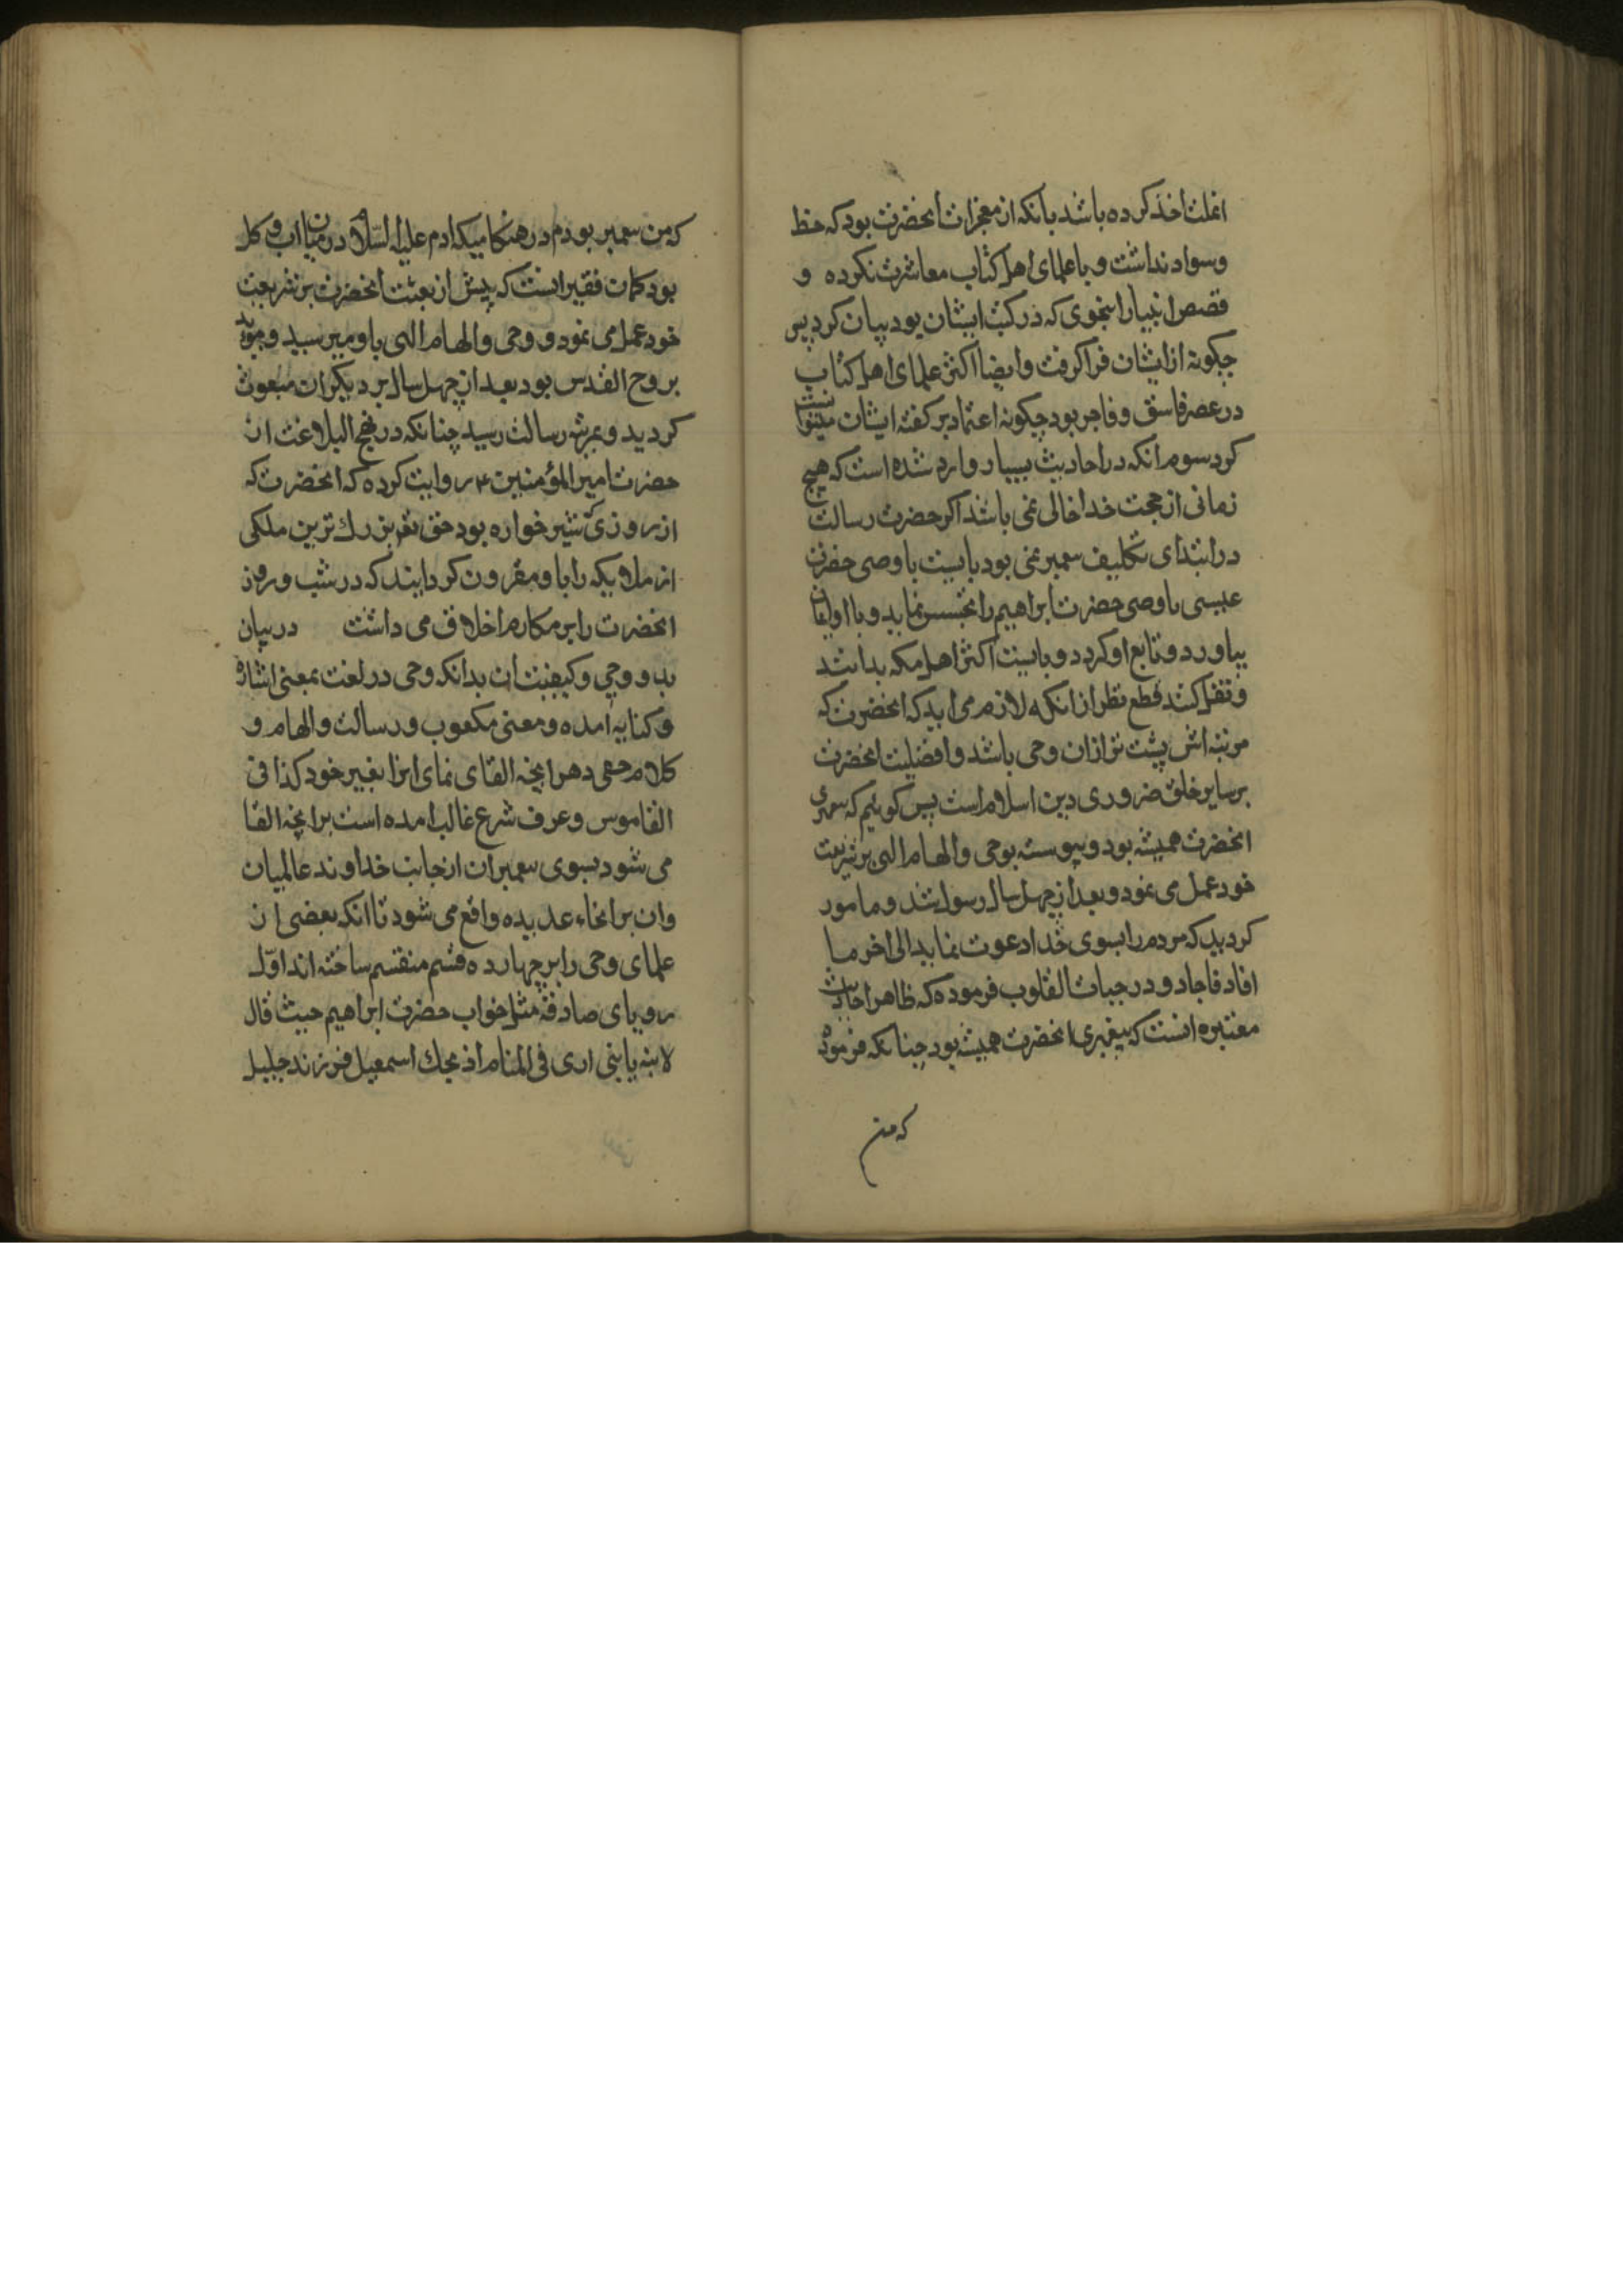 انملت اخذ کرده باشد بانکه از معجزات انحضرت بود که خط
وسواد نداشت و با علمای اهل کتاب معاشرت نکرده و
قصص انبیا را بنحوی که در کتب ایشان بود بیان کرد پس
چکونه از ایشان فرا کرفت و ایضا اکثر علمای اهل کتاب
در عصر فاسق و فاجر بود چکونه اعتماد بر کفته ایشان میتوانست
کرد سوم انکه در احادیث بسیار وارد شده است که هیچ
زمانی از حجت خدا خالی نمی باشد اکر حضرت رسالت
در ابتدای تکلیف پیغمبر نمی بود بایست با وصی حضرت
عیسی یا وصی حضرت ابراهیم را تجسس نماید و با او ایمان
بیاورد و تابع او کردد و بایست اکثر اهل مکه بدانند
و نقل کنند قطع نظر از انکه لازم می اید که انحضرت که
مرتبه اش پشت تر از ان وحی باشد و افضلیت انحضرت
بر سایر خلق ضروری دین اسلام است پس کوئیم که پیغمبری
انحضرت همیشه بود و پیوسته بوحی و الهام الهی بر شریعت
خود عمل می نمود و بعد از چهل سال رسول شد و مامور
کردید که مردم را بسوی خدا دعوت نماید الی اخر ما
افاد فاجاد و در حیات القلوب فرموده که ظاهر احادیث
معتبره انست که پیغمبری انحضرت همیشه بود چنانکه فرموده
که من
که من پیغمبر بودم در هنکامیکه ادم علیه السلام در میان اب و کل
بود کمان فقیر انست که پیش از بعثت انحضرت بر شریعت
خود عمل می نمود و وحی و الهام الهی باو میرسید و موید
بروح القدس بود بعد از چهل سال بر دیکران مبعوث
کردید و بمرتبه رسالت رسید چنانکه در نهج البلاغت از
حضرت امیر المؤمنین ع روایت کرده که انحضرت که
از روزی که شیر خواره بود حق تع بزرك ترین ملکی
از ملایکه را باو مقرون کردانید که در شب و روز
انحضرت را بر مکارم اخلاق می داشت در بیان
بدو وحی و کیفیت ان بدانکه وحی در لغت بمعنی اشاره
و کنایه آمده و معنی مکعوب و رسالت و الهام و
کلام خفی و هر انچه القای نمای انرا بغیر خود کذا فی
القاموس و عرف شرع غالب امده است بر انچه القا
می شود بسوی پیغمبران از جانب خداوند عالمیان
وان بر انحاء عدیده واقع می شود تا انکه بعضی از
علمای وحی را بر چهارده قسم منقسم ساخته اند اوّل
رویای صادقه مثل خواب حضرت ابراهیم حیث قال
لابنه یا بنی اری فی المنام اذبحك اسمعیل فرزند جلیل